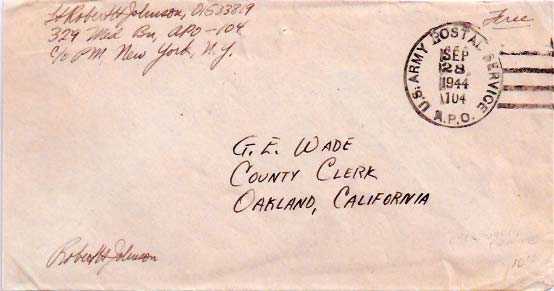 Lt Robert H Johnson, O1533819
329 Med Bn, APO-104
c/o PM, New York, N.Y.
Free
U.S. ARMY POSTAL SERVICE
SEP
28
1944
104
A.P.O.
G. E. WADE
COUNTY CLERK
OAKLAND, CALIFORNIA
Robert H Johnson